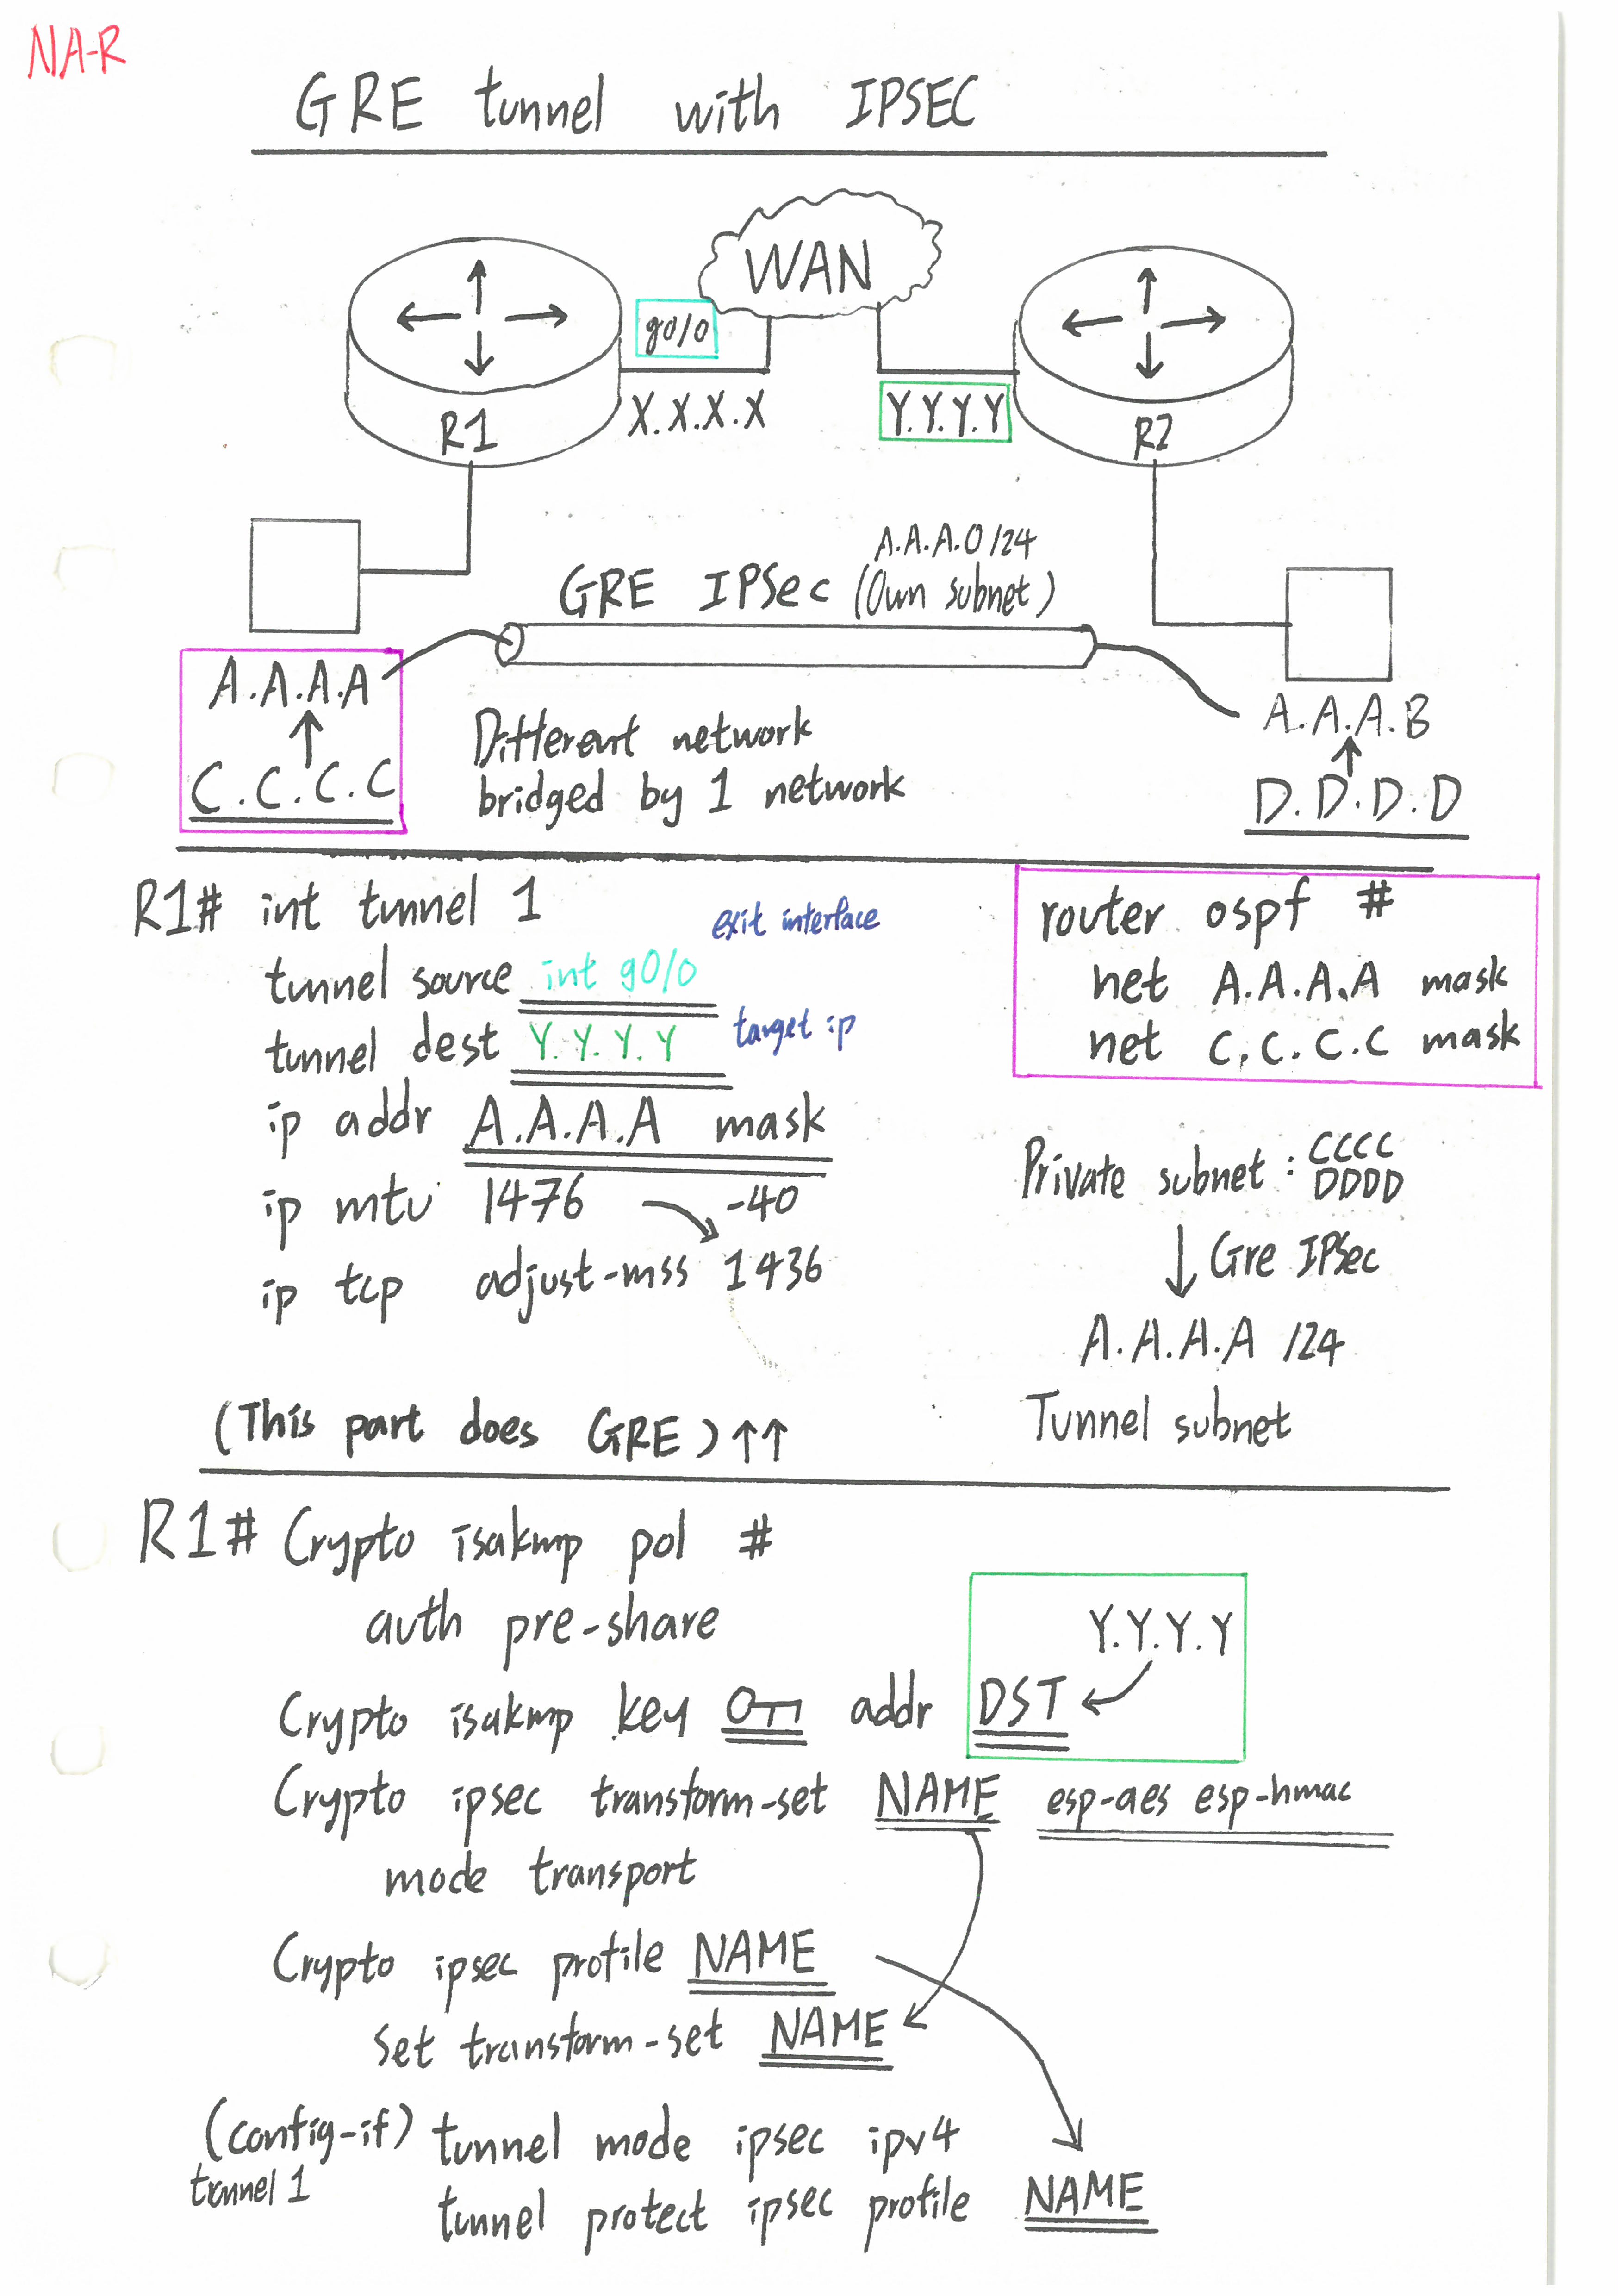 NA-R
GRE tunnel with IPSEC
WAN
g0/0
X.X.X.X
Y.Y.Y.Y
R1
R2
A.A.A.0 /24
GRE IPSec (Own subnet)
A.A.A.A
C.C.C.C
Different network
bridged by 1 network
A.A.A.B
D.D.D.D
R1# int tunnel 1
exit interface
tunnel source int g0/0
tunnel dest Y.Y.Y.Y target ip
ip addr A.A.A.A mask
ip mtu 1476 -40
ip tcp adjust-mss 1436
(This part does GRE) ↑↑
router ospf #
net A.A.A.A mask
net C.C.C.C mask
Private subnet : CCCC
DDDD
↓ Gre IPSec
A.A.A.A /24
Tunnel subnet
R1# Crypto isakmp pol #
auth pre-share
Y.Y.Y.Y
Crypto isakmp key addr DST
Crypto ipsec transform-set NAME esp-aes esp-hmac
mode transport
Crypto ipsec profile NAME
Set transform-set NAME
(config-if) tunnel mode ipsec ipv4
tunnel 1
tunnel protect ipsec profile NAME